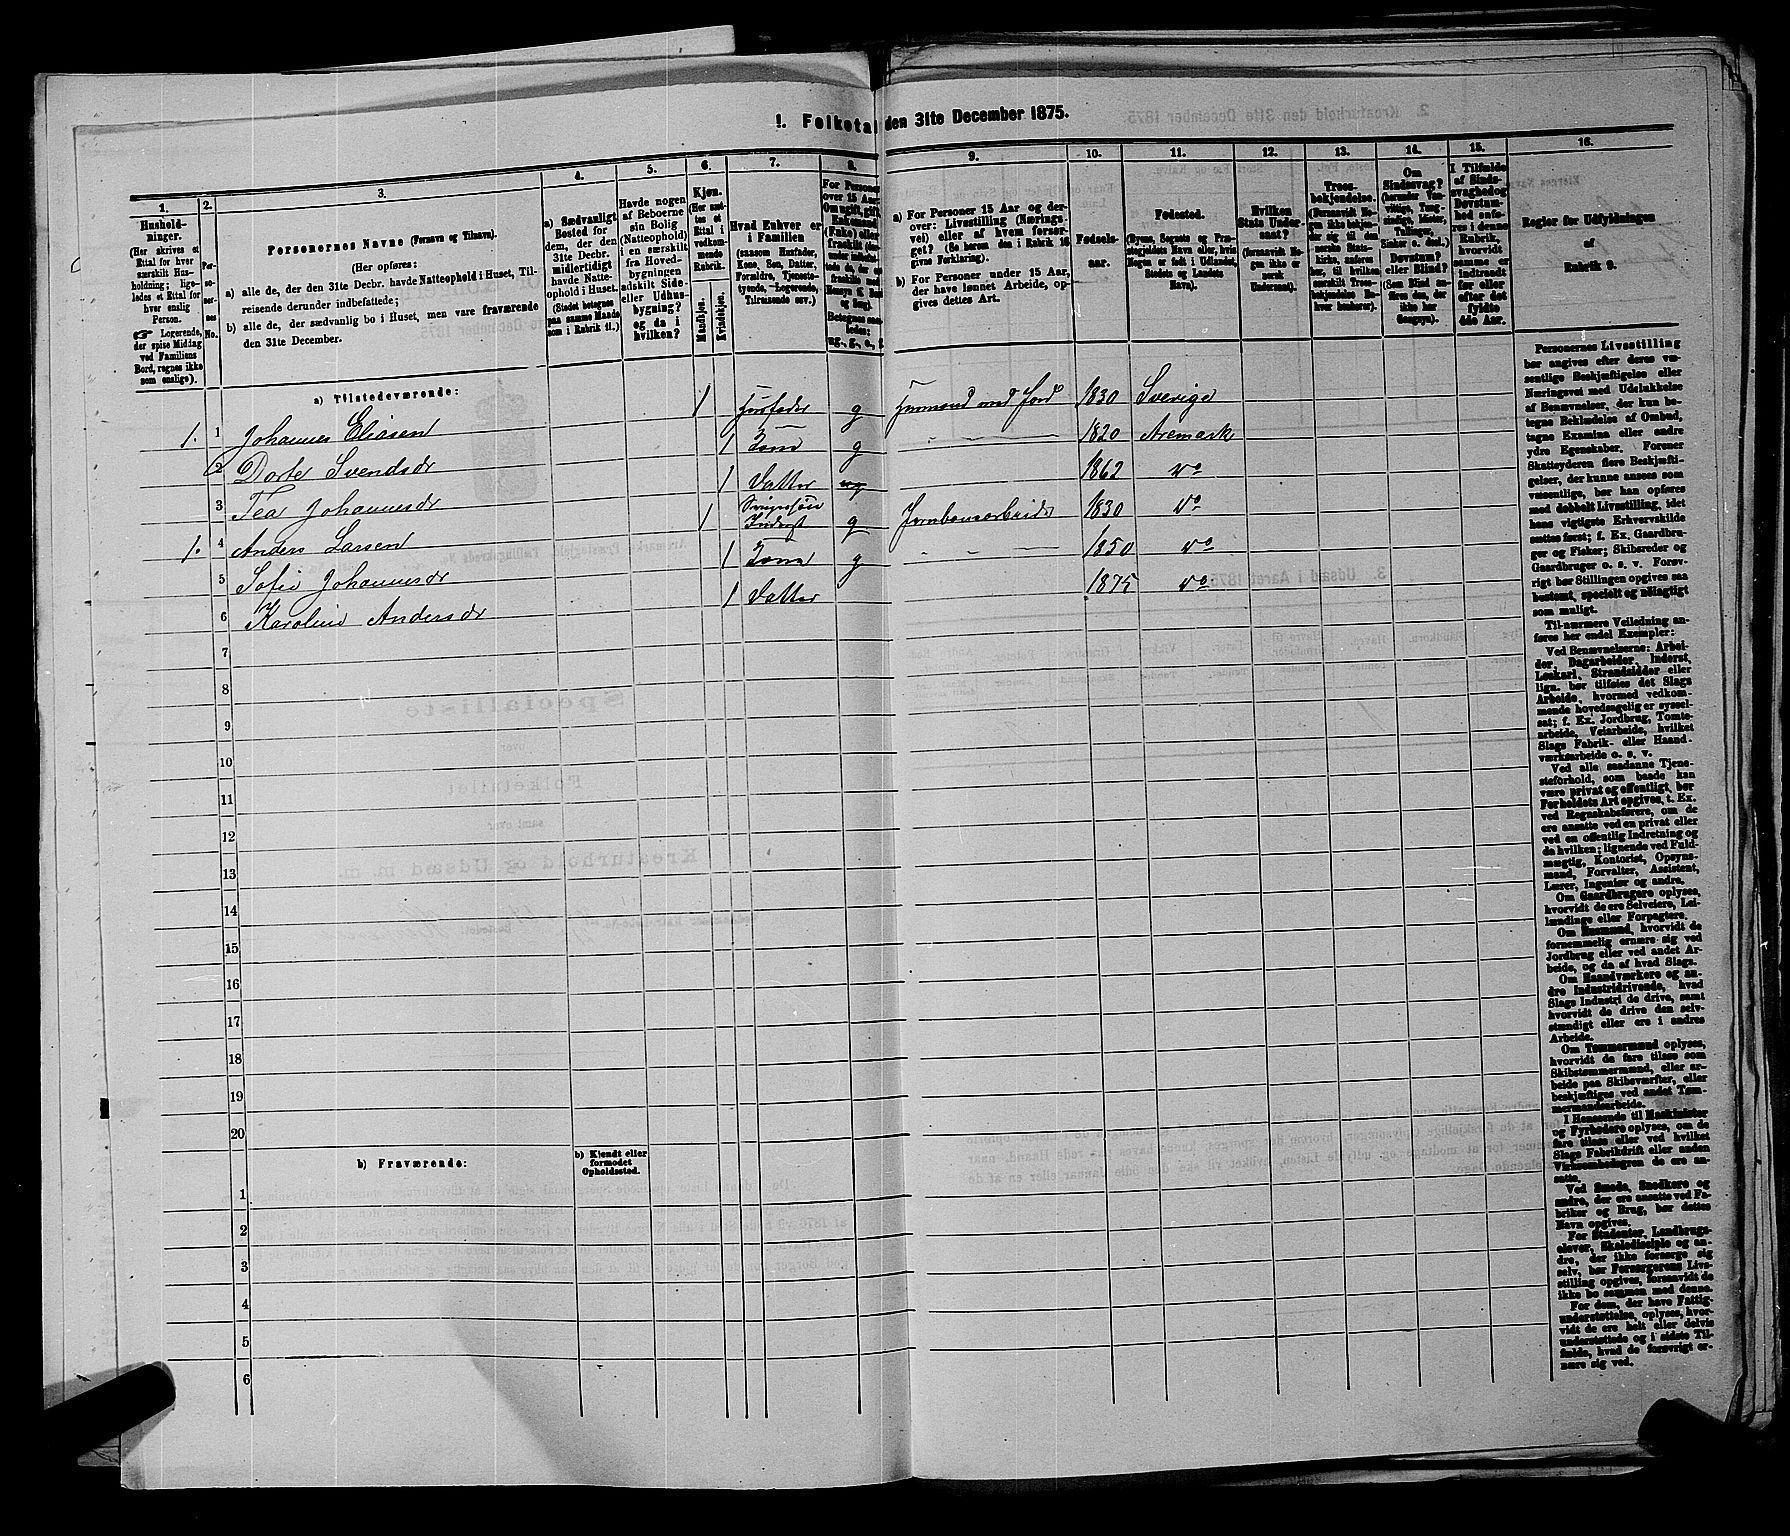 1. Folketal den 31te December 1875.
1. 2. 3. 4. 5. 6. 7. 8. 9. 10. 11. 12. 13. 14. 15. 16.
Hushold-
ninger.
(Her skrives et
Ettal for hver
særskilt Hus-
holdning; lige-
ledes et Ettal for
hver enslig
Person.
Logerende,
der spise Middag
ved Familiens
Bord, regnes ikke
som enslige).
Per-
so-
ner-
nes
No.
Personernes Navne (Fornavn og Tilnavn).
(Her opføres:
a) alle de, der den 31te Decbr. havde Natteophold i Huset, Til-
reisende derunder indbefattede;
b) alle de, der sædvanlig bo i Huset, men vare fraværende
den 31te December.
a) Sædvanligt
Bosted for
dem, der den
31te Decbr.
midlertidigt
havde Natte-
ophold i Huset.
(Stedet betegnes
paa samme Maade
som i Rubrik 11.)
Havde nogen
af Beboerne
sin Bolig
(Natteophold)
i en særskilt
fra Hoved-
bygningen
adskilt Side-
eller Udhus-
bygning?
og da i
hvilken?
Kjøn.
(Her sæt-
tes et
Ettal i
vedkom-
mende
Rubrik.
Mandkjøn.
Kvindekjøn.
Hvad Enhver er
i Familien
(saasom Husfader,
Kone, Søn, Datter,
Forældre, Tjeneste-
tyende, Logerende,
Tilreisende osv.)
For Personer
over 15 Aar:
Om ugift, gift,
a) For Personer 15 Aar og der-
over: Livsstilling (Nærings-
vei) eller af hvem forsør-
get? (Se herom den i Rubrik 16
givne Forklaring).
b) For Personer under 15 Aar,
der have lønnet Arbeide, op-
gives dettes Art.
Fødsels-
aar.
Fødested.
(Byens, Sognets og Præ-
stegjeldets Navn eller, hvis
Nogen er født i Udlandet,
Stedets og Landets
Navn).
Hvilken
Stats Under-
saat?
(forsaavidt No-
gen ikke er
norsk
Undersaat).
Troes-
bekjendelse.
(Forsaavidt No-
gen ikke beken-
der sig til den
norske Stats-
kirke, anføres
her, til hvilken
særskilt Troes-
bekjendelse No-
gen henhører).
Om
Sindssvag?
Døvstum?
eller Blind?
I Tilfælde
af Sinds-
svaghed og
Døvstum-
hed anfø-
res i denne
Rubrik,
hvorvidt
samme er
indtraadt
før eller
efter det
fyldte
4de Aar.
Regler for Udfyldningen
af
Rubrik 9.
a) Tilstedeværende:
1. 1 Johannes Eliasen 1 Husfader g Husmand med Jord 1830 Sverige
2 Dorte Svendsdr 1 Kone g 1820 Aremark
3 Tea Johannesdr 1 Datter ug 1862 do
1. 4 Anders Larsen 1 Inderst g Jernbanearbeider 1830 do
5 Sofie Johannesdr 1 Kone g 1850 do
6 Karoline Andersdr 1 Datter 1875 do
7
8
9
10
11
12
13
14
15
16
17
18
19
20
b) Fraværende:
b) Kjendt eller
formodet
Opholdssted.
1
2
3
4
5
6
Personernes Livsstilling
bør angives efter deres væ-
sentlige Beskjæftigelse eller
Næringsvei med Udelukkelse
af Benævnelser, der kun be-
tegne Beklædelse af Ombud,
tagne Examina eller andre
ydre Egenskaber. Forener
Skatteyderen flere Beskjæfti-
gelser, der kunne ansees som
væsentlige, bør han opføres
med dobbelt Livsstilling, idet
hans vigtigste Erhvervskilde
sættes først; f. Ex. Gaardbru-
ger og Fisker; Skibsreder og
Gaardbruger o. s. v. Forøv-
rigt bør Stillingen opgives saa
bestemt, specielt og nøiagtigt
som muligt.
Til nærmere Veiledning an-
føres her endel Exempler:
Ved Benævnelserne: Arbei-
der, Dagarbeider, Inderst,
Løskarl, Strandsidder eller
lign. bør tilføies det Slags
Arbeide, hvormed vedkom-
mende hovedsagelig er syssel-
sat; f. Ex. Jordbrug, Tomte-
arbeide, Veiarbeide, hvilket
Slags Fabrik- eller Haand-
værksarbeide o. s. v.
Ved alle saadanne Tjene-
steforhold, som baade kan
være privat og offentligt, bør
Forholdets Art opgives, t. Ex.
ved Regnskabsførere, om de
ere ansatte ved en privat eller
ved en offentlig Indretning og
da hvilken; lignende ved Fuld-
mægtig, Kontorist, Opsyns-
mand, Forvalter, Assistent,
Lærer, Ingeniør og andre.
Om Gaardbrugere oplyses,
hvorvidt de ere Selveiere, Lei-
lændinge eller Forpagtere.
Om Husmænd, hvorvidt de
fornemmelig ernære sig ved
Jordbrug eller ved andet Ar-
beide, og da af hvad Slags.
Om Haandværkere og an-
dre Industridrivende, hvad
Slags Industri de drive, samt
hvorvidt de drive den selv-
stændigt eller ere i andres
Arbeide.
Om Tømmermænd oplyses,
hvorvidt de fare tilsøs som
Skibstømmermænd, eller ar-
beide paa Skibsværfter, eller
beskjæftiges ved andet Tøm-
mermandsarbeide.
I Henseende til Maskinister
og Fyrbødere oplyses, om de
fare tilsøs eller ved hvilket
Slags Fabrikdrift eller anden
Virksomhed de ere an-
satte.
Ved Smede, Snedkere og
andre, der ere ansatte ved Fa-
briker og Brug, bør dettes
Navn opgives.
For Studenter, Landbrugs-
elever, Skoledisciple og an-
dre, der ikke forsørge sig
selv, bør Forsørgerens Livs-
stilling opgives, forsaavidt de
ikke bo sammen med denne.
For dem, der have Fattig-
understøttelse, oplyses, hvor-
vidt de ere helt eller delvis
understøttede og i sidste Til-
fælde, hvad de forøvrigt er-
nære sig ved.